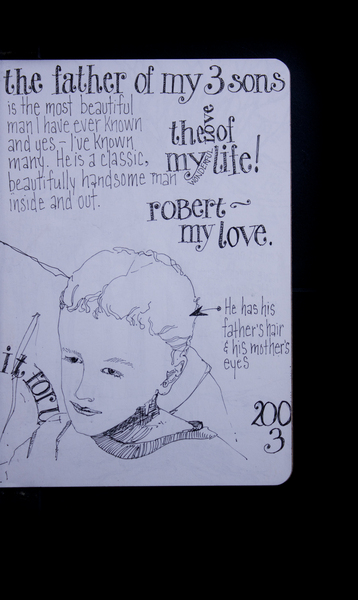 the father of my 3 sons
is the most beautiful
man I have ever known
and yes – I've known
many. He is a classic,
beautifully handsome man
inside and out.
the love of
my wonderful life!
robert ~
my love.
He has his
father's hair
& his mother's
eyes
it, for
200
3